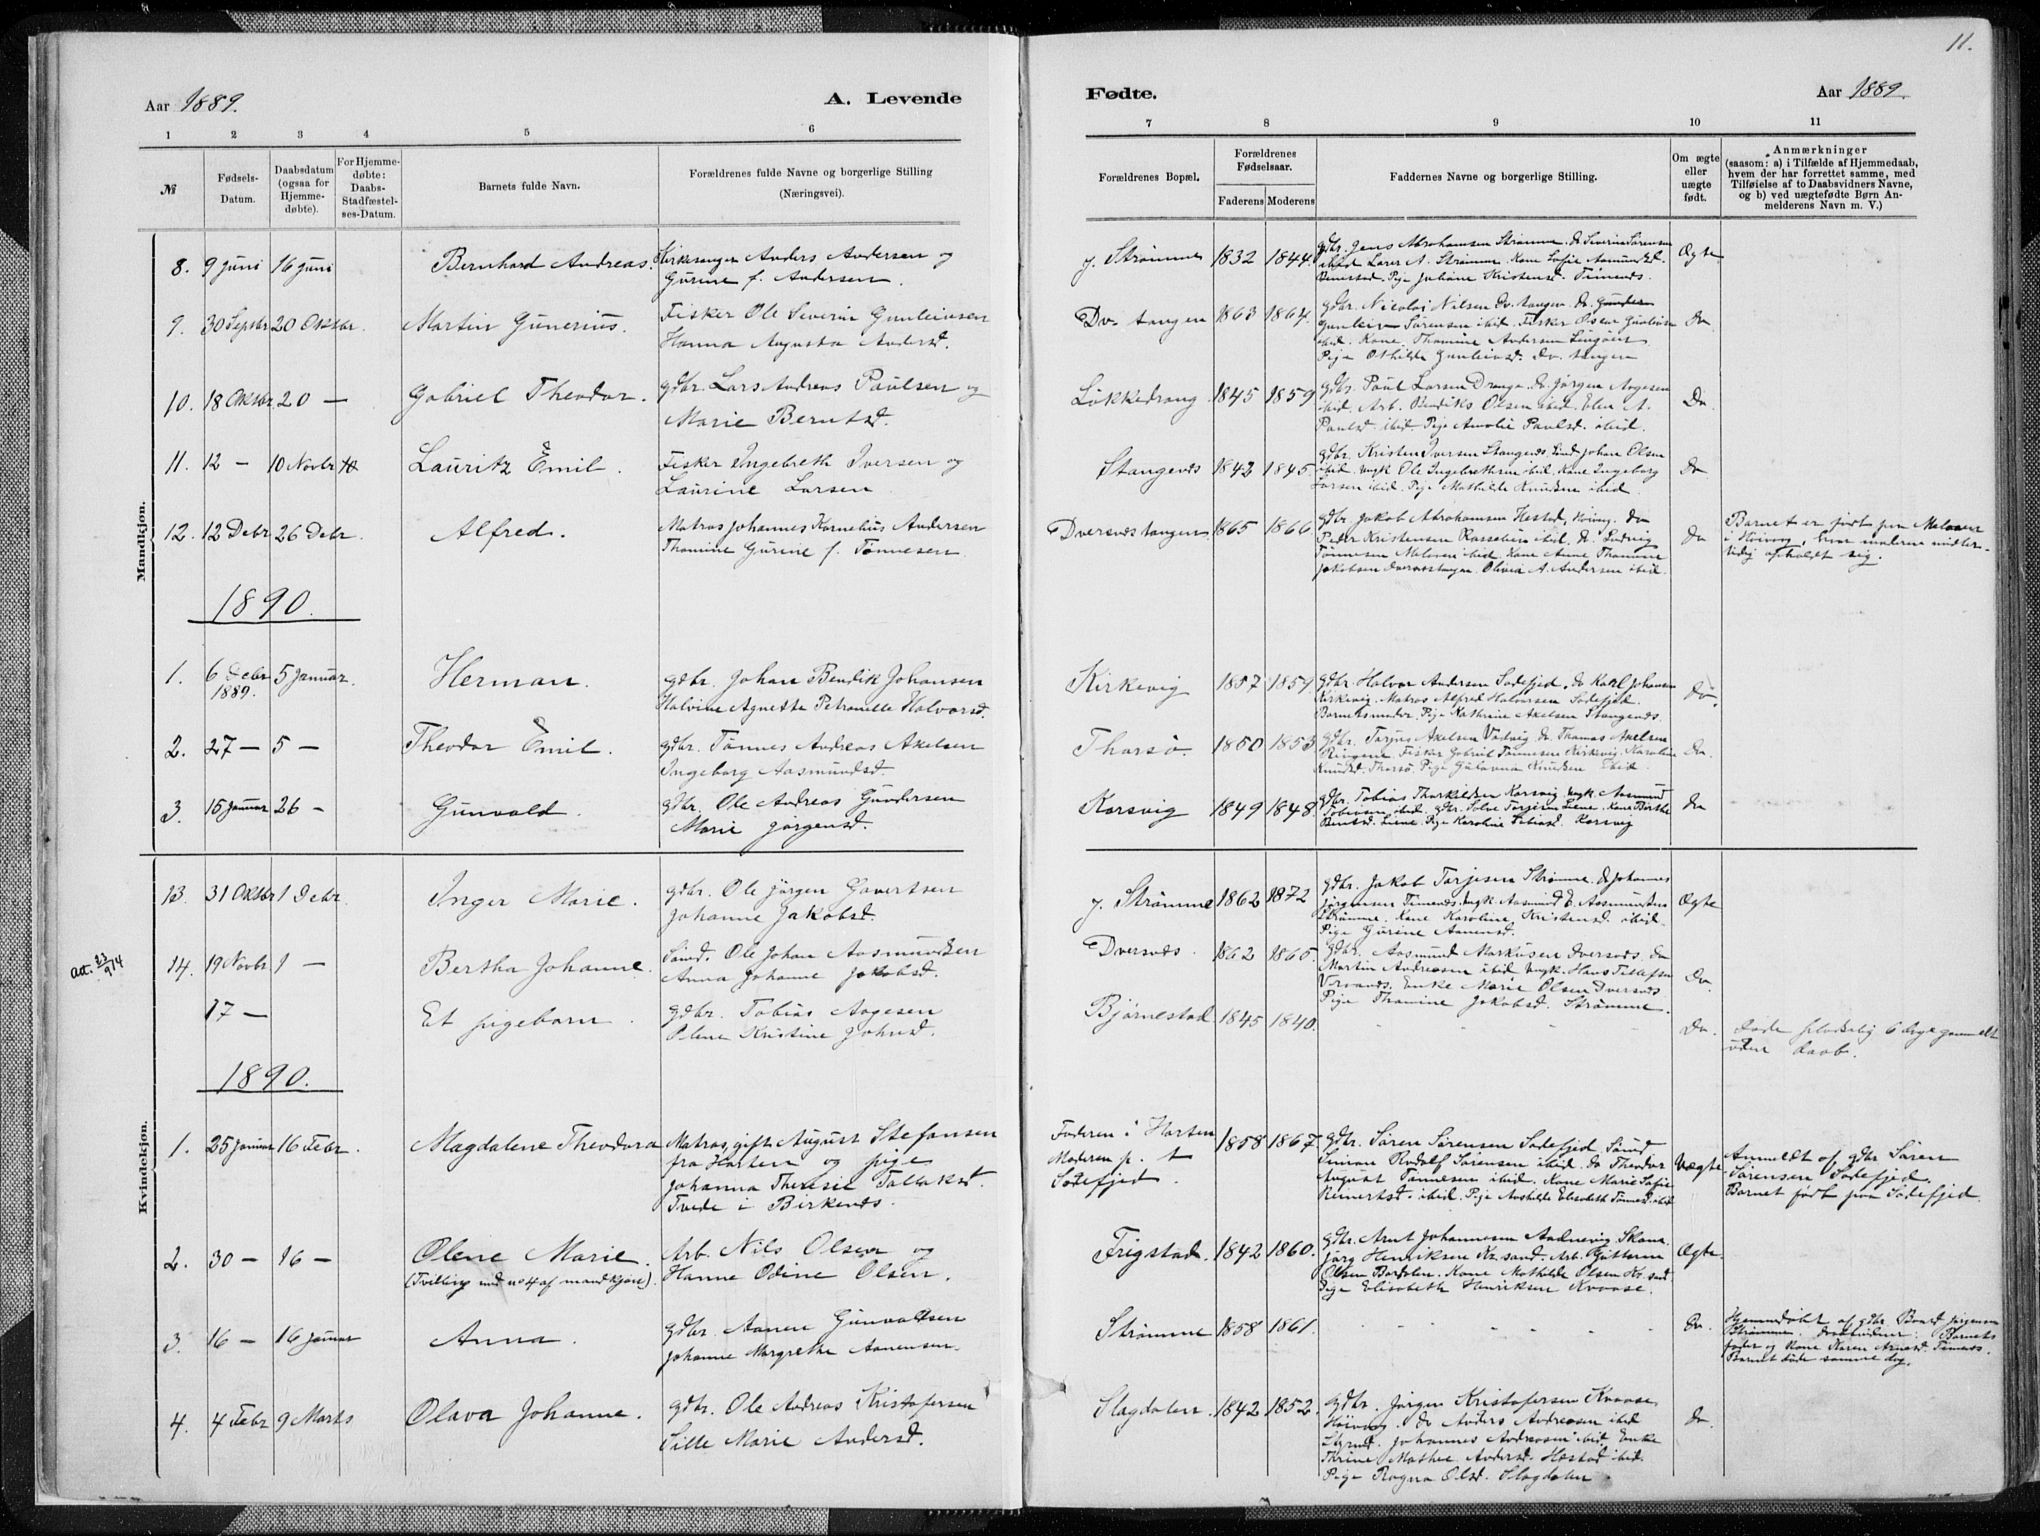 11.
Aar 1889.
A. Levende
Fødte.
Aar 1889.
1 2 3 4 5 6 7 8 9 10 11
№
Fødsels-Datum.
Daabsdatum (ogsaa for Hjemme-døbte).
For Hjemme-døbte: Daabs-Stadfæstel-ses-Datum.
Barnets fulde Navn.
Forældrenes fulde Navne og borgerlige Stilling
(Næringsvei).
Forældrenes Bopæl.
Forældrenes Fødselsaar.
Faderens Moderens
Faddernes Navne og borgerlige Stilling.
Om ægte eller uægte født.
Anmærkninger
(saasom: a) i Tilfælde af Hjemmedaab,
hvem der har forrettet samme, med
Tilføielse af to Daabsvidners Navne,
og b) ved uægtefødte Børn An-
melderens Navn m. V.)
Mandkjøn.
8. 9 Juni 16 Juni Bernhard Andreas. Kirkesanger Anders Andersen og
Gurine f. Andersen.
y. Strømme 1832 1844. gdbr. Jens Abrahamsen Strømme. do Severin Sørensen
ibid Lars A. Strømme. Kone Sofie Aasmundsd.
Pige Juliane Kristense. Timenes.
Ægte
9. 30 Septbr 20 Oktbr. Martin Gunerius. Fisker Ole Severin Gunleivsen
Hanna Augusta Andersd.
Dv. tangen 1863 1864. gdbr. Nicolai Nilsen Dv. tangen. do
Gunleiv Sørensen ibid. Fisker Oscar Gunleivsen
ibid. Kone Thomine Andersen
Pige Othilde Gunleivsd. Dv. tangen
Do
10. 18 Oktbr 20 — Gabriel Theodor. gdbr. Lars Andreas Paulsen og
Marie Berntsd.
Løkkedrang 1845 1859 gdbr. Paul Larsen Drange. do Jørgen Aagesen
ibid. Arb. Bendiks Olsen ibid. Elen A.
Paulsd. ibid. Pige Amalie Paulsd. ibid.
Do.
11. 12 — 10 Novbr Lauritz Emil. Fisker Ingebreth Iversen og
Laurine Larsen
Stangenes 1842 1845. gdbr. Kristen Iversen Stangenes. Sømd Johan Olsen
ibid. Ungk Ole Ingebrethsen ibid. Kone Ingeborg
Larsen ibid. Pige Mathilde Knudsen ibid.
Do
12. 12 Debr 26 Debr. Alfred. Matros Johannes Kornelius Andersen
Thomine Gurine f. Tønnesen.
Dversnæstangen 1865 1866 gdbr Jakob Abrahamsen Hestad, Høivog. do
Peder Kristensen ibid. do Ludvig
Tønnesen ibid. Kone Anne Thomine
Jakobsen Dversnæstangen. Olivia A. Andersen ibid.
Do
Barnet er født paa
i Høivog, hvor moderen midler-
tidig opholdt sig.
1890.
1. 6 Debr 1889. 5 Januar. Herman. gdbr. Johan Bendik Johansen
Halvine Agnethe Petronelle Halvorsd.
Kirkevig 1857 1859. gdbr. Halvor Andersen Sodefjed. do Karl Johansen
Kirkevig. Matros Alfred Halvorsen Sodefjed.
Barnets moder. Pige Kathrine Axelsen Stangenes.
Do.
2. 27 — 5 — Theodor Emil. gdbr. Tønnes Andreas Akelsen
Ingeborg Aasmundsd.
Thorsø. 1850 1853 gdbr. Tarjus Axelsen do Thomas Axelsen
Fisker Gabriel Tønnesen Kirkevig. Karoline
Knudsd. Thorsø. Pige Gustavna Knudsen ibid.
Do.
3. 15 Januar 26 — Gunvald. gdbr. Ole Andreas Gundersen
Marie Jørgensd.
Korsvig 1849 1848. gdbr. Tobias Thorkildsen Korsvig. Ungk. Aasmund
Tobiasen ibid. gdbr. Salve Torjesen Liene. Kone Berthe
Berntsd. Liene. Pige Karoline Tobiasd. Korsvig
Do
Kvindekjøn.
13. 31 Oktbr 1 Debr. Inger Marie. gdbr. Ole Jørgen Govertsen
Johanne Jakobsd.
y. Strømme 1862 1872 gdbr. Jakob Tarjesen Strømme. do Johannes
Jørgensen Timenes. Ungk. Aasmund
Strømme. Kone Karoline Kristensd. ibid.
Pige Gurine Aanensd.
Ægte
Att. 23/9 14
14. 19 Novbr. 1 — Bertha Johanne. Sømd. Ole Johan Aasmundsen
Anna Johanne Jakobsd.
Dversnæs. 1862 1865. gdbr. Aasmund Markusen Dversnæs. do
Martin Andreasen ibid Ungk. Hans Tellefsen
Enke Marie Olsen Dversnæs
Pige Thomine Jakobsd. Strømme.
Do.
17 — Et pigebarn. gdbr. Tobias Aagesen
Olene Kristine Johnsd.
Bjørnestad 1845 1840. Do. Døde pludselig 6 dage gammelt
uden daab.
1890.
1. 25 Januar 16 Febr. Magdalene Theodora Matros, gift August Stefansen
fra Horten og pige
Johanna Therese Tallaksd.
Tvede i Birkenæs.
Faderen i Horten
Moderen p. t
Sodefjed.
1858 1867. gdbr. Søren Sørensen Sodefjed Sømd
Simon Rudolf Sørensen ibid. do Theodor
August Tønnesen ibid. Kone Marie Sofie
Reinertsd. ibid. Pige Mathilde Elisabeth Tønnesd. ibid
Uægte
Anmeldt af gdbr Søren
Sørensen Sodefjed.
Barnet født paa Sodefjed.
2. 30 — 16 — Olene Marie.
(Tvilling med no 4 af mandkjøn).
Arb. Nils Olsen og
Hanne Odine Olsen.
Frigstad 1842 1860. gdbr. Arnt Johannesen
Jørg Henriksen Kr. sand. Arb. Guttorm
Olsen Kone Mathilde Olsen Kr. sand
Pige Elisabeth Henriksen Kvaase.
Ægte
3. 16 — 16 Januar Anna. gdbr. Aanen Gunvaldsen
Johanne Margrethe Aanensen.
Strømme 1858 1861. Do. Hjemmedøbt af gdbr Jørgensen
Strømme. Barnets
fader og Kone Karen Timenes.
Barnet døde samme dag.
4. 4 Febr 9 Marts Olava Johanne. gdbr. Ole Andreas Kristofersen
Sille Marie Andersd.
Slagdalen 1842 1852. gdbr. Jørgen Kristofersen Kvaase,
Høivog. do Anders Andreasen ibid
Styrmd. Johannes Andreasen ibid Enke
Thrine Mathea Andersd. Hestad ibid.
Pige Ragna Olsd. Slagdalen
Do.